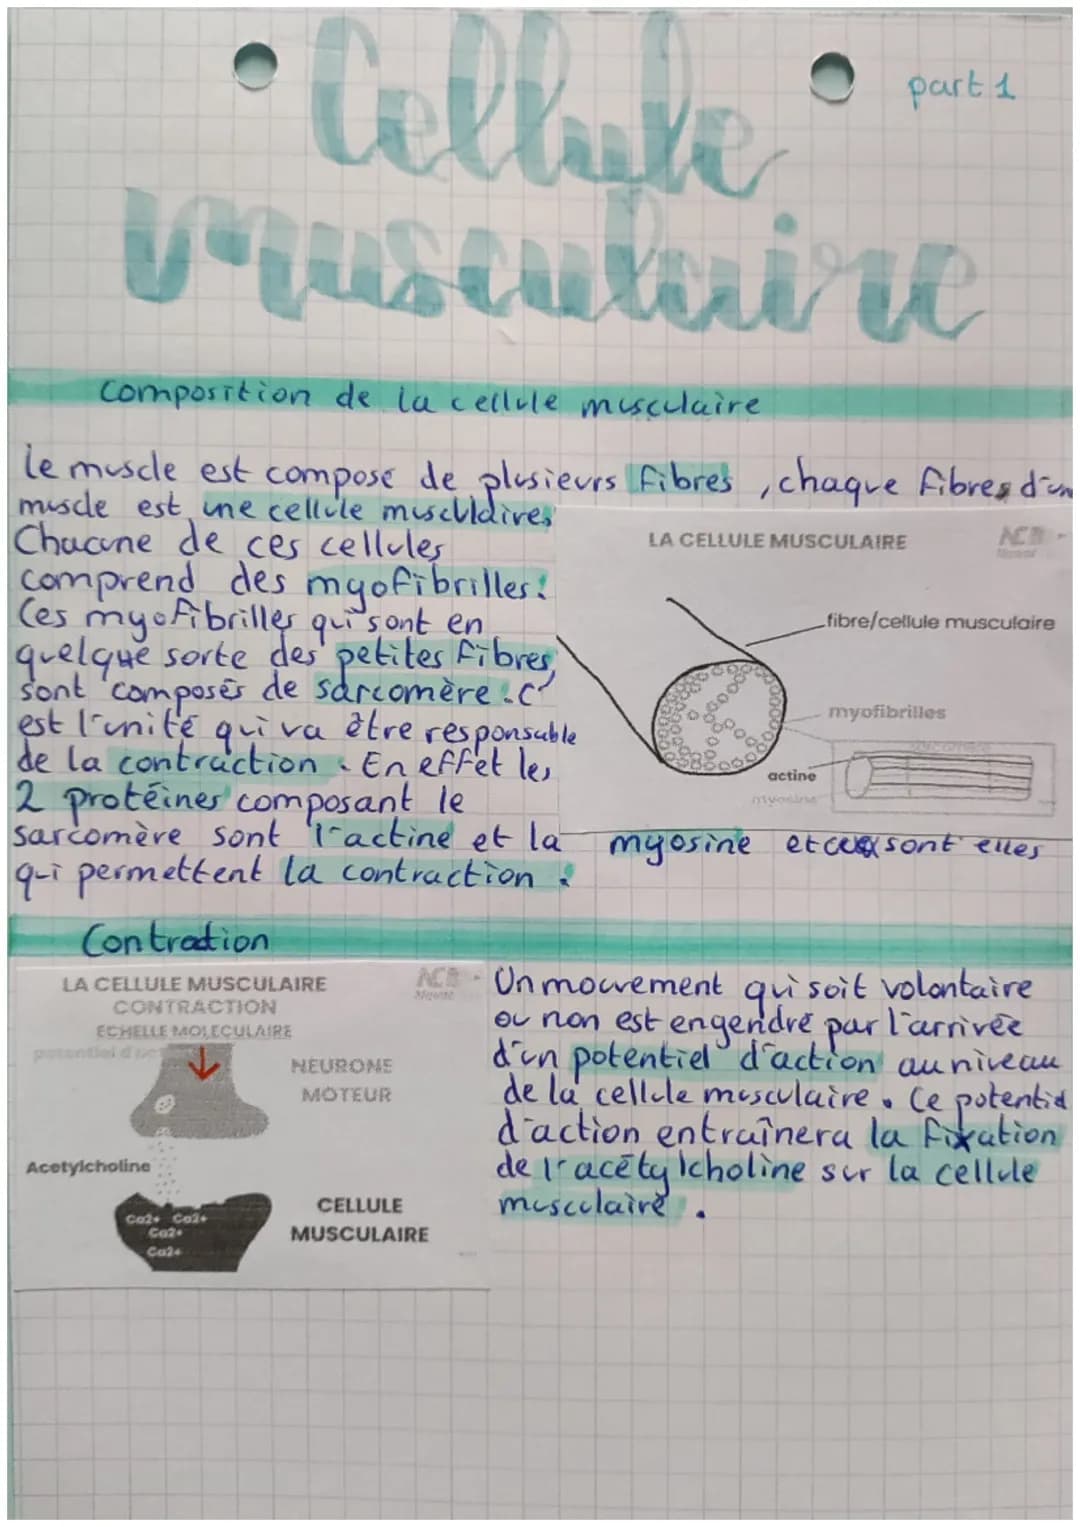 part 1
Cellule
musculaire
Composition de la cellule musculaire
Le muscle est composé de plusieurs fibres, chaque fibres d'un
muscle est une cellule musculaires
Chacune de ces cellules
comprend des myofibrilles.
Ces myofibrilles qui sont en
quelque sorte des petites fibres,
sont composés de sarcomère. C'
est l'unité qui va être responsable
de la contraction. En effet les
2 protéines composant le
sarcomère sont l'actine et la myosine et sont elles
qui permettent la contraction.
LA CELLULE MUSCULAIRE
fibre/cellule musculaire
myofibrilles
sarcomère
actine
myosine
Contraction
LA CELLULE MUSCULAIRE
CONTRACTION
ECHELLE MOLECULAIRE
potentiel d'
NEURONE
MOTEUR
Acetylcholine
CELLULE
MUSCULAIRE
Ca2+ Ca2+
Ca2+
Ca2+
Un mouvement qui soit volontaire
ou non est engendré par l'arrivée
d'un potentiel d'action au niveau
de la cellule musculaire. Ce potentiel
d'action entraînera la fixation
de l'acétylcholine sur la cellule
musculaire.